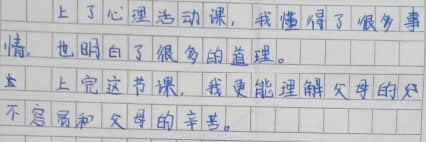 上了心理活动课，我懂得了很多事
情，也明白了很多的道理。
上完这节课，我更能理解父母的
不容易和父母的辛苦。